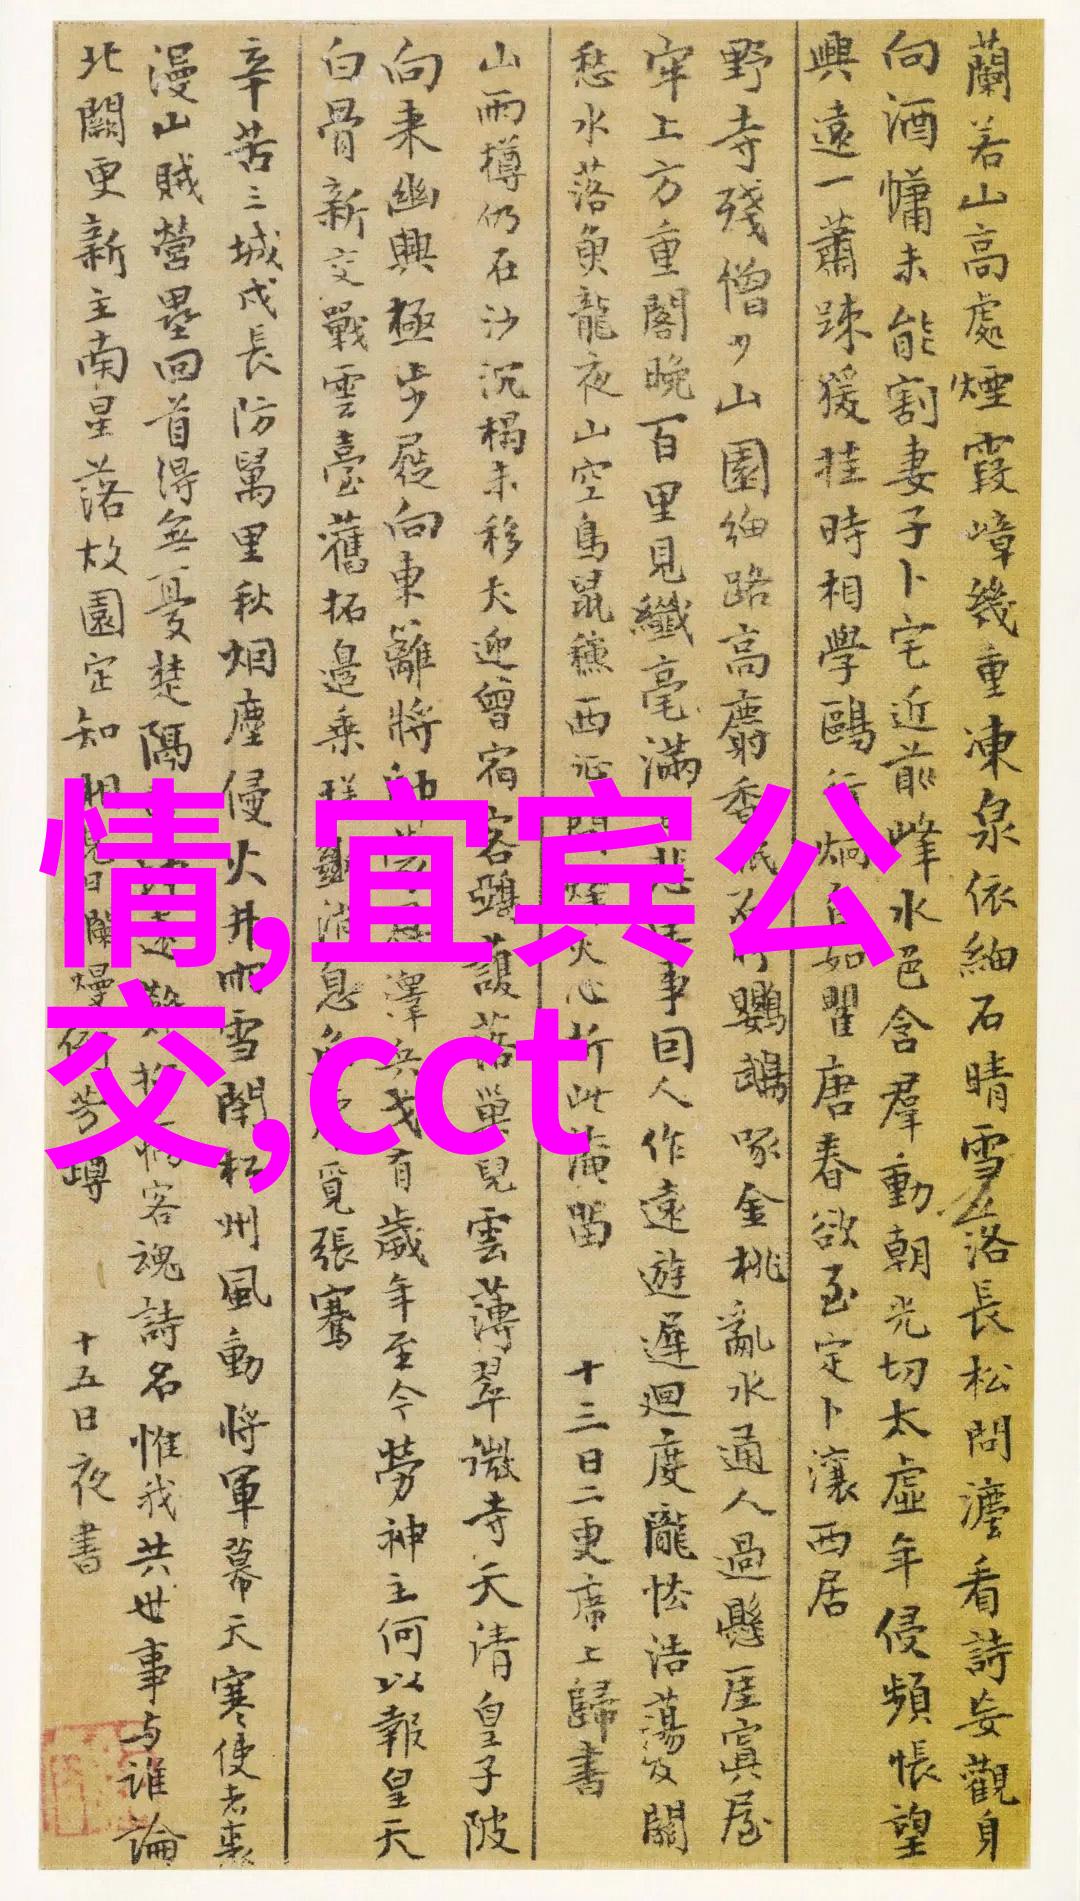 蘭若山高處煙霞嶂幾重凍泉依細石晴雪落長松問灋看詩妄觀身
向酒慵未能割妻子卜宅近前峰水色含羣動朝光切太虛年侵頻悵望
興遠一蕭踈猨挂時相學鷗行炯自如瞿唐春欲至定卜瀼西居
野寺殘僧少山園細路高麝香眠石竹鸚鵡啄金桃亂水通人過懸崖寘屋
牢上方重閣晚百里見纖毫滿悲生事因人作遠遊遲迴度隴怯浩蕩及關
愁水落魚龍夜山空鳥鼠穐西征問烽火心折此淹留 十三日二更席上歸書
山雨樽仍在沙沉榻未移犬迎曾宿客鵶護落巢兒雲薄翠微寺天清皇子陂
向来幽興極步屐向東籬將帥恩澤兵戈有歲年至今勞神主何以報皇天
白骨新交戰雲臺舊拓邊乘槎斷消息無覓張騫
辛苦三城戍長防萬里秋烟塵侵火井雨雪閉松州風動將軍幕天寒使者裘
漫山賊營壘回首得無憂楚隔遠難招病客魂詩名惟我共世事与誰論
北闕更新主南星落故園定知相見日爛熳倒芳罇 十五日夜書
情,宜宾公
交,cct